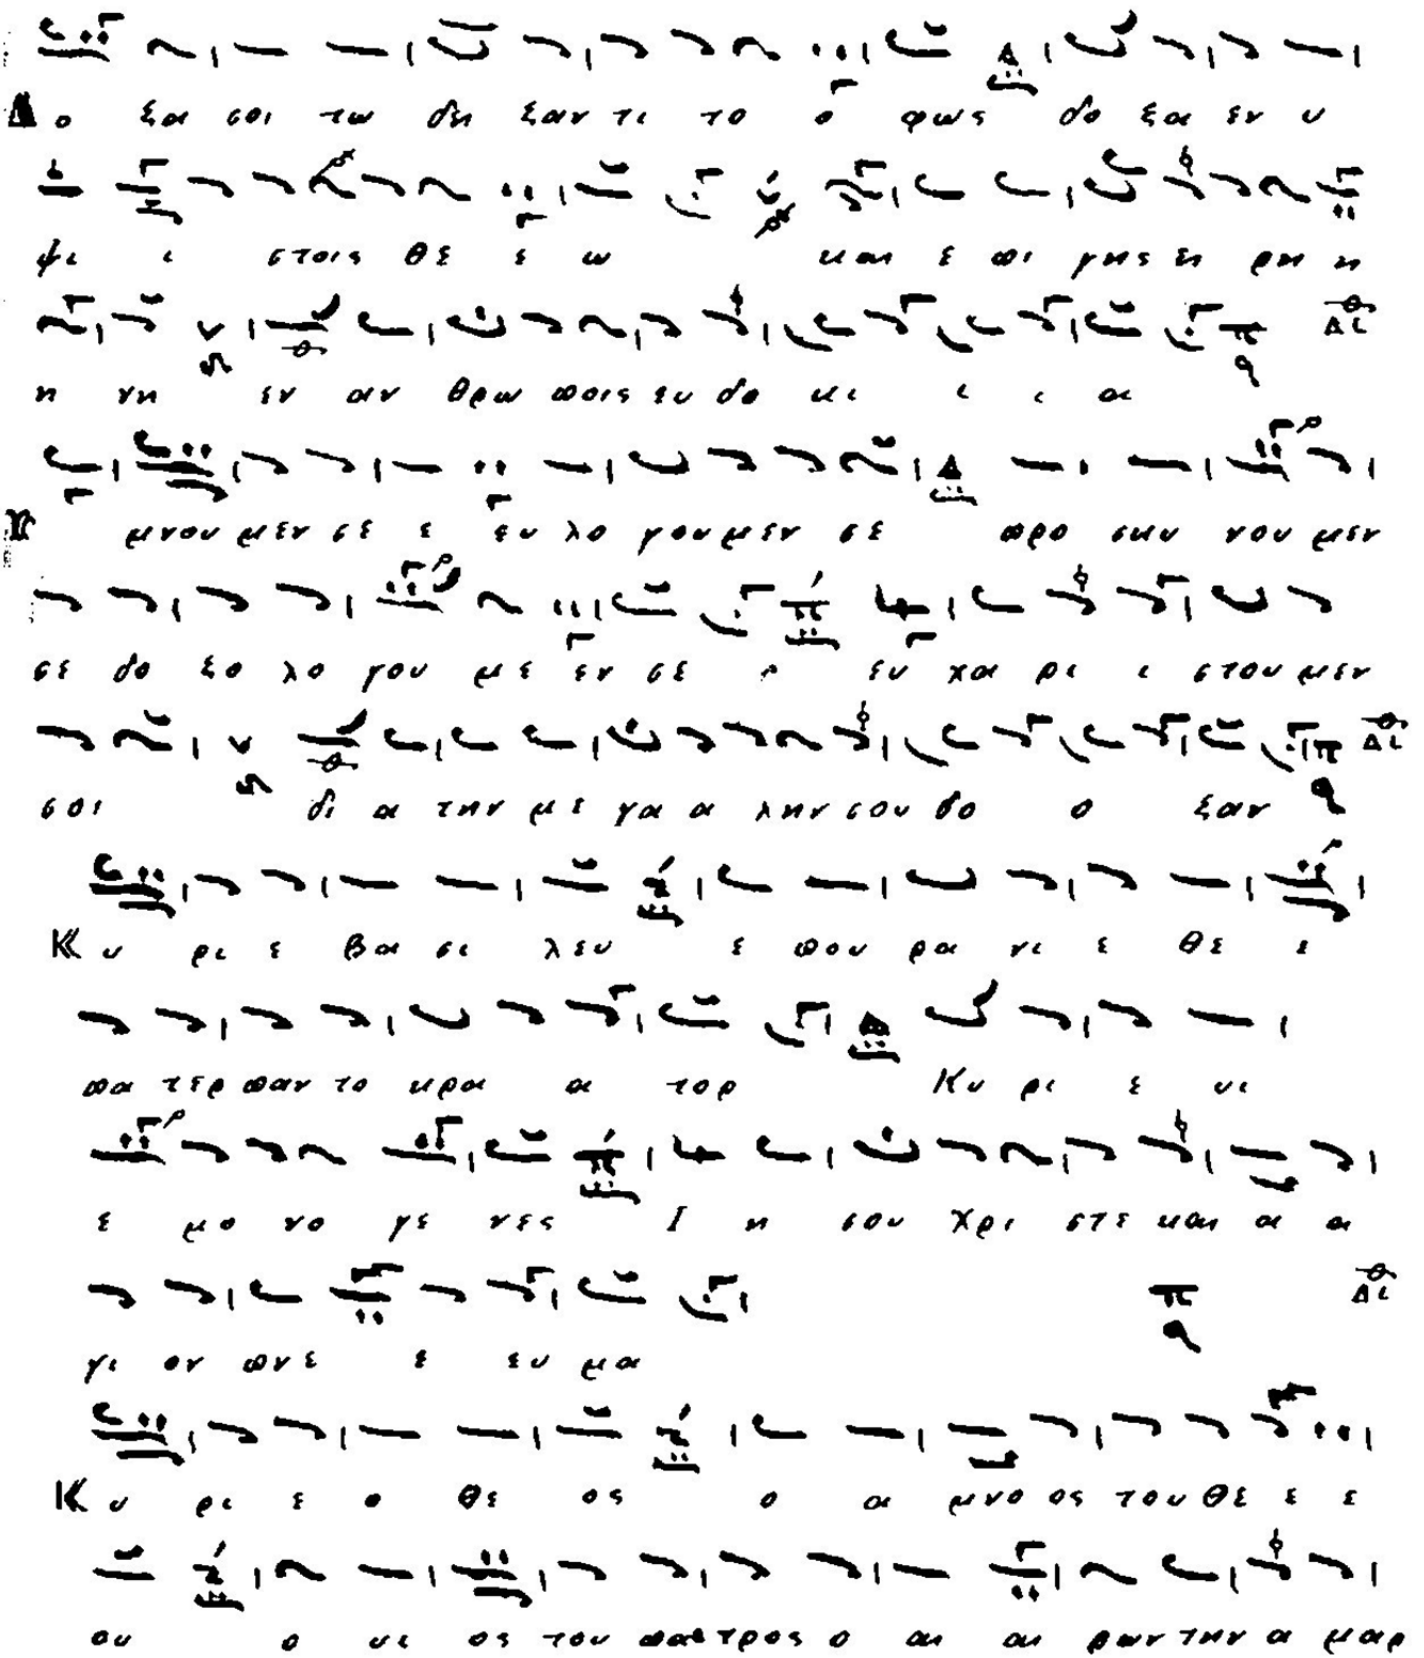 Δο ξα σοι τω δει ξαν τι το ο φως δο ξα εν υ
ψι ι στοις θε ε ω και ε πι γης ει ρη η
η νη εν αν θρω ποις ευ δο κι ι ι α
Υ μνου μεν σε ε ευ λο γου μεν σε προ σκυ νου μεν
σε δο ξο λο γου με εν σε ευ χα ρι ι στου μεν
σοι δι α την με γα α λην σου δο ο ξαν
Κυ ρι ε βα σι λευ ε που ρα νι ε θε ε
πα τερ παν το κρα α τορ Κυ ρι ε υι
ε μο νο γε νες Ι η σου Χρι στε και α α
γι ον πνε ε ευ μα
Κυ ρι ε ο θε ος ο α μνο ος του θε ε ε
ου ο υι ος του πα τρος ο αι αι ρων την α μαρ